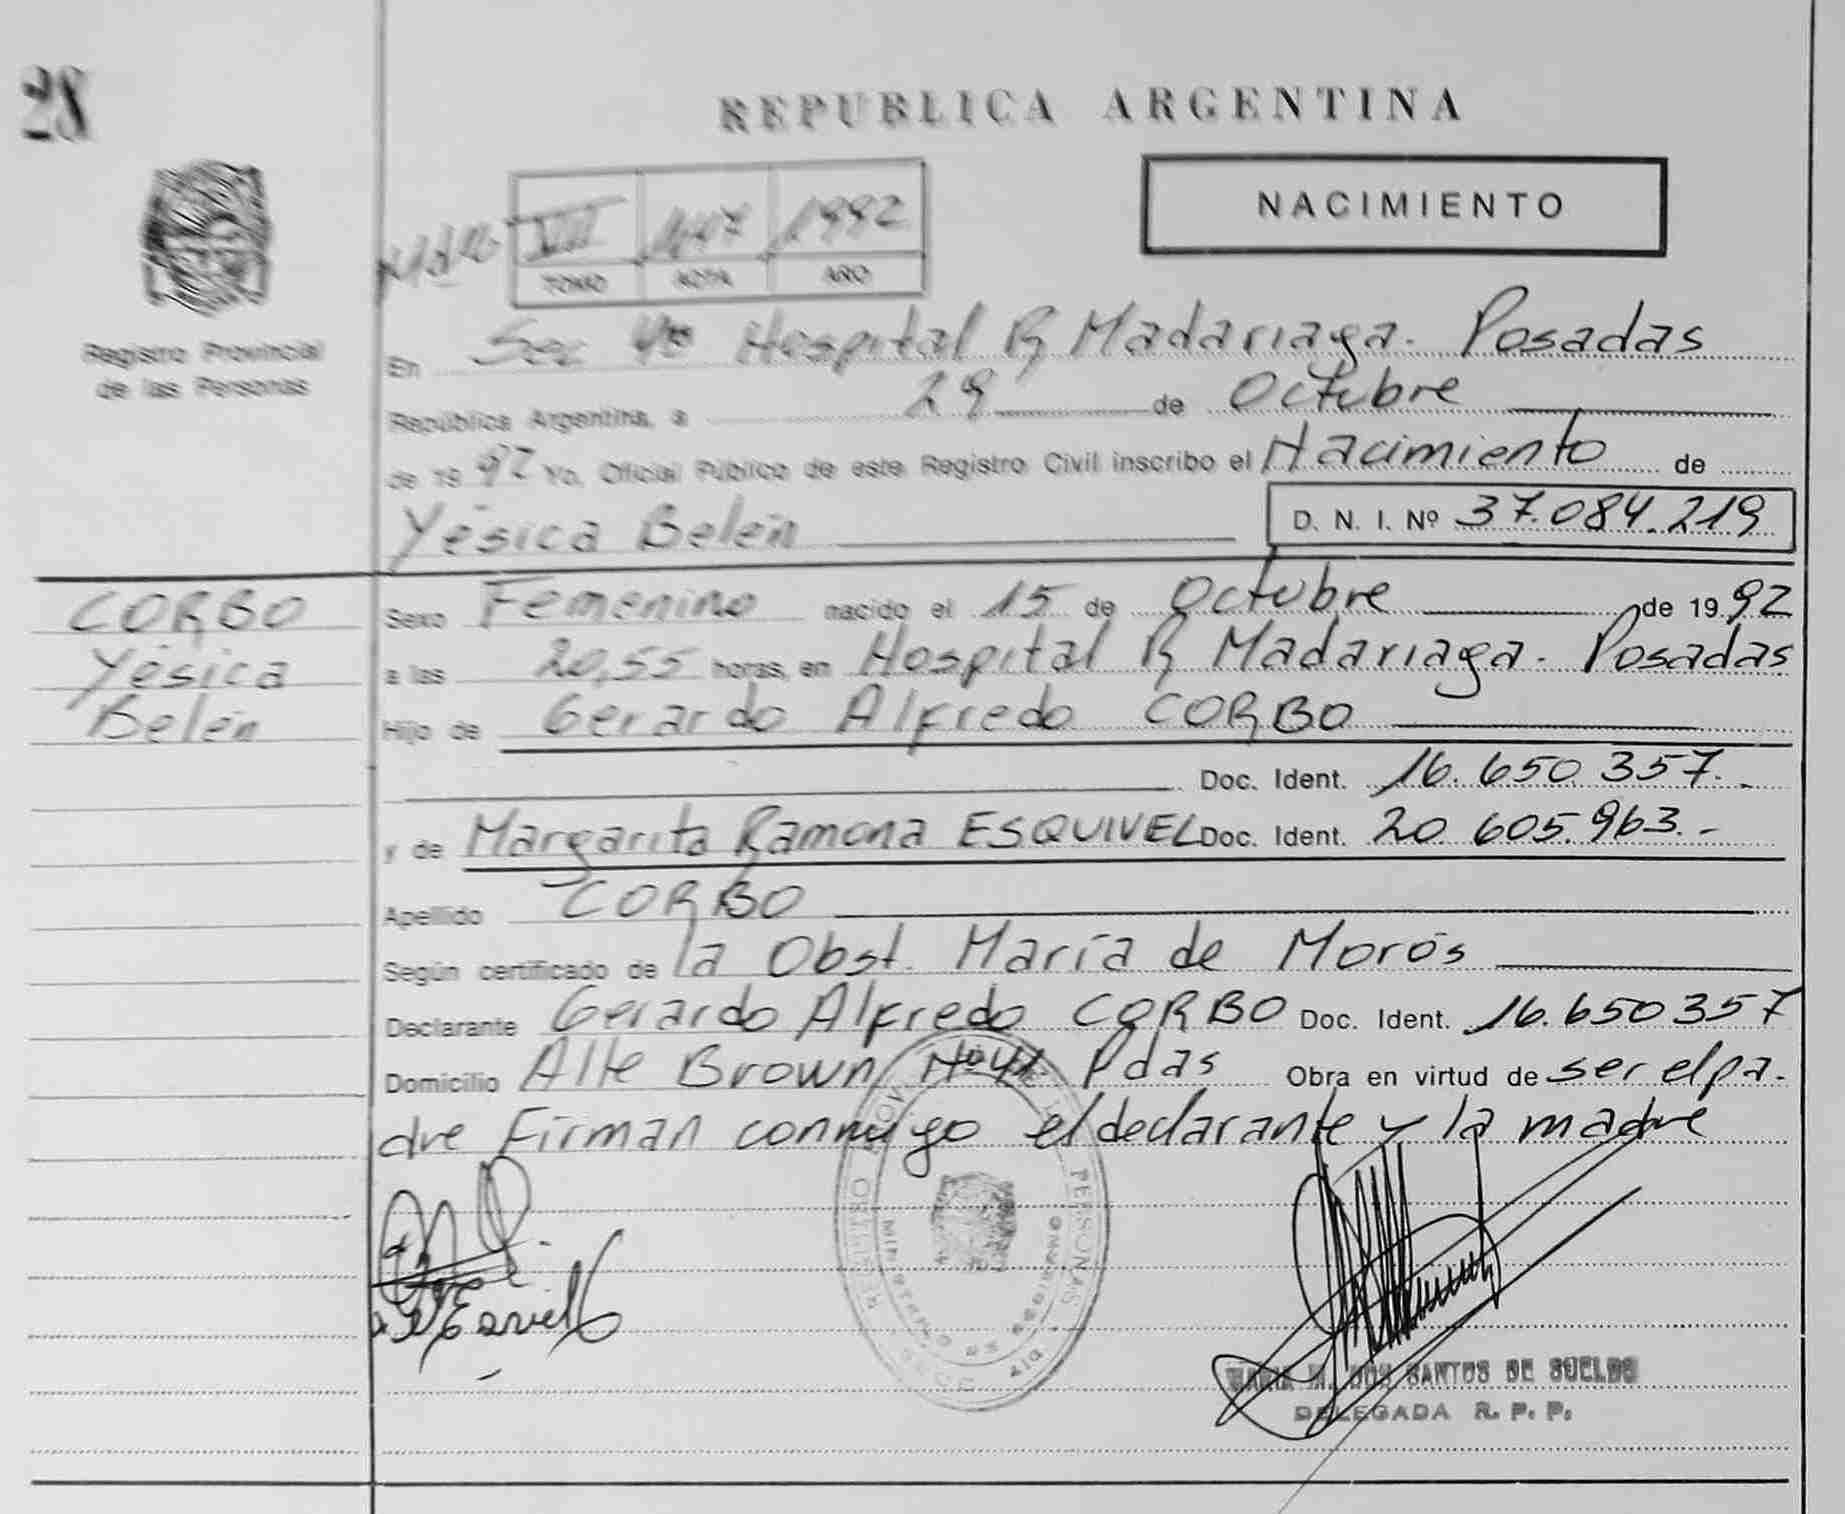 28
REPUBLICA ARGENTINA
NACIMIENTO
VIII 1992
TOMO ACTA AÑO
Registro Provincial
de las Personas
En Sec Hospital R Madariaga. Posadas
República Argentina, a 29 de Octubre
de 1992 Yo, Oficial Público de este Registro Civil inscribo el Nacimiento de
Yésica Belén
D. N. I. Nº 37.084.219
CORBO
Yésica
Belén
Sexo Femenino nacido el 15 de Octubre de 1992
a las 20,55 horas, en Hospital R Madariaga. Posadas
Hijo de Gerardo Alfredo CORBO
Doc. Ident. 16.650.357.-
y de Margarita Ramona ESQUIVEL Doc. Ident. 20.605.963.-
Apellido CORBO
Según certificado de la Obst. María de Morós
Declarante Gerardo Alfredo CORBO Doc. Ident. 16.650357
Domicilio Alte Brown Nº 41 Pdas Obra en virtud de ser el pa.
dre Firman conmigo el declarante y la madre
MARIA M. DOS SANTOS DE SUELDO
DELEGADA R. P. P.